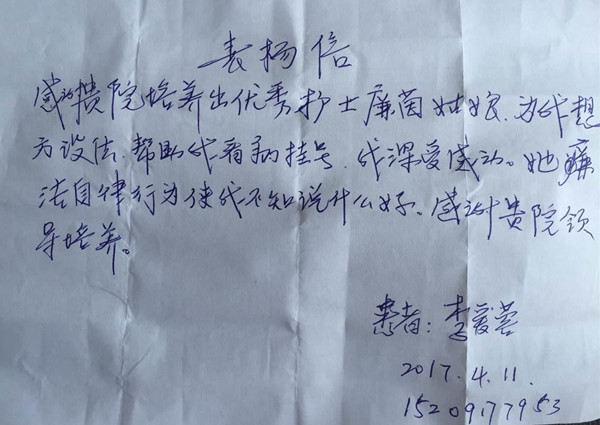 表杨信
感谢贵院培养出优秀护士廉茵姑娘,为我想
方设法,帮助我看病挂号,我深受感动。她廉
法自律行为使我不知说什么好。感谢贵院领
导培养。
患者:李爱蓉
2017.4.11.
15209177953